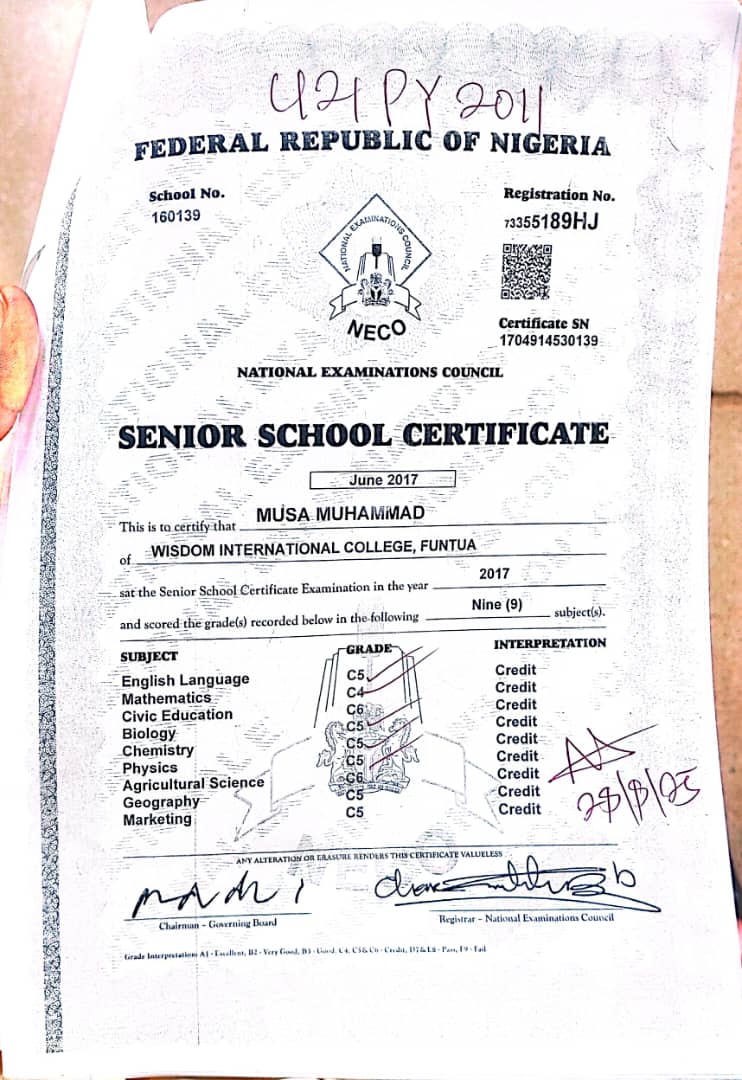 U21PY2011
FEDERAL REPUBLIC OF NIGERIA
School No.
160139
Registration No.
73355189HJ
NATIONAL EXAMINATIONS COUNCIL
NECO
Certificate SN
1704914530139
NATIONAL EXAMINATIONS COUNCIL
SENIOR SCHOOL CERTIFICATE
June 2017
This is to certify that MUSA MUHAMMAD
of WISDOM INTERNATIONAL COLLEGE, FUNTUA
sat the Senior School Certificate Examination in the year 2017
and scored the grade(s) recorded below in the following Nine (9) subject(s).
SUBJECT GRADE INTERPRETATION
English Language C5 Credit
Mathematics C4 Credit
Civic Education C6 Credit
Biology C5 Credit
Chemistry C5 Credit
Physics C5 Credit
Agricultural Science C6 Credit
Geography C5 Credit
Marketing C5 Credit
28/8/25
ANY ALTERATION OR ERASURE RENDERS THIS CERTIFICATE VALUELESS
Chairman - Governing Board
Registrar - National Examinations Council
Grade Interpretation: A1 - Excellent, B2 - Very Good, B3 - Good, C4, C5 & C6 - Credit, D7 & E8 - Pass, F9 - Fail